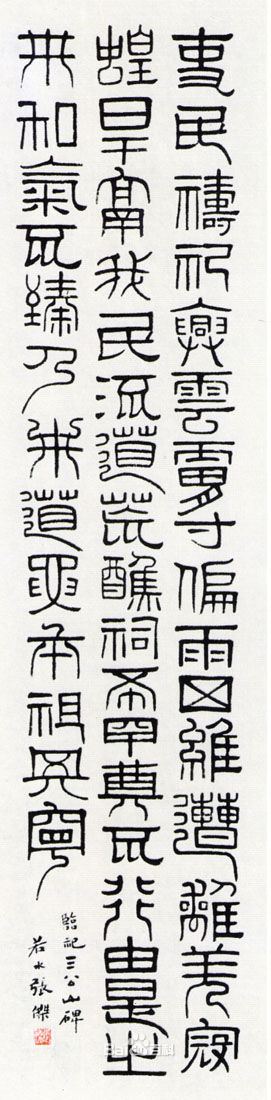 吏民禱祀興雲膚寸偏雨四維遭離羌寇
蝗旱鬲我民流道荒醮祠希罕奠不行由是之
來和氣不臻乃求道要本祖其寧
臨祀三公山碑
若水張傑
Baidu百科